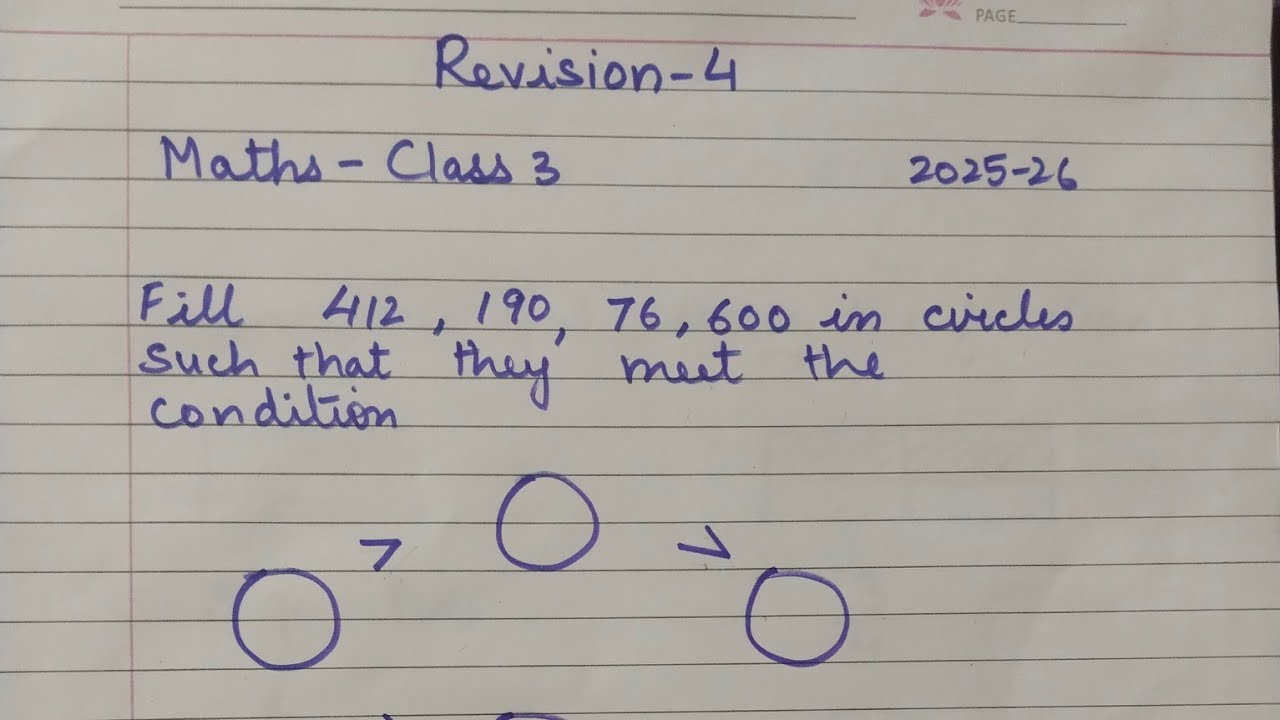 PAGE
Revision-4
Maths - Class 3 2025-26
Fill 412, 190, 76, 600 in circles
such that they meet the
condition
> >